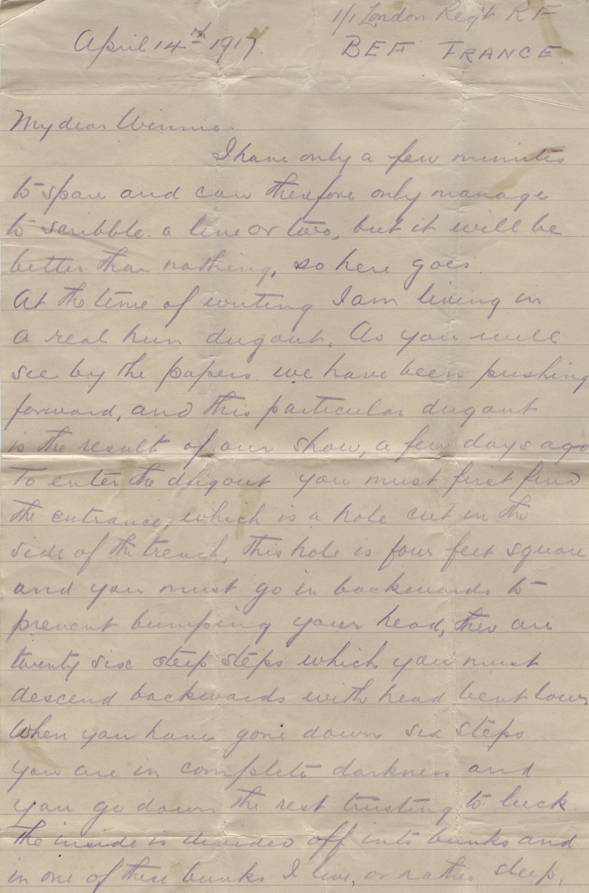 1/1 London Regt R F
April 14th 1917.
BEF FRANCE.
My dear Winnie.
I have only a few minutes
to spare and can therefore only manage
to scribble a line or two, but it will be
better than nothing, so here goes.
At the time of writing I am living in
a real hun dugout. As you will
see by the papers we have been pushing
forward, and this particular dugout
is the result of our show, a few days ago
To enter the dugout you must first find
the entrance, which is a hole cut in the
side of the trench, this hole is four feet square
and you must go in backwards to
prevent bumping your head, there are
twenty six steep steps which you must
descend backwards with head bent low
When you have gone down six steps
you are in complete darkness and
you go down the rest trusting to luck
The inside is divided off into bunks and
in one of these bunks I live, or rather sleep.